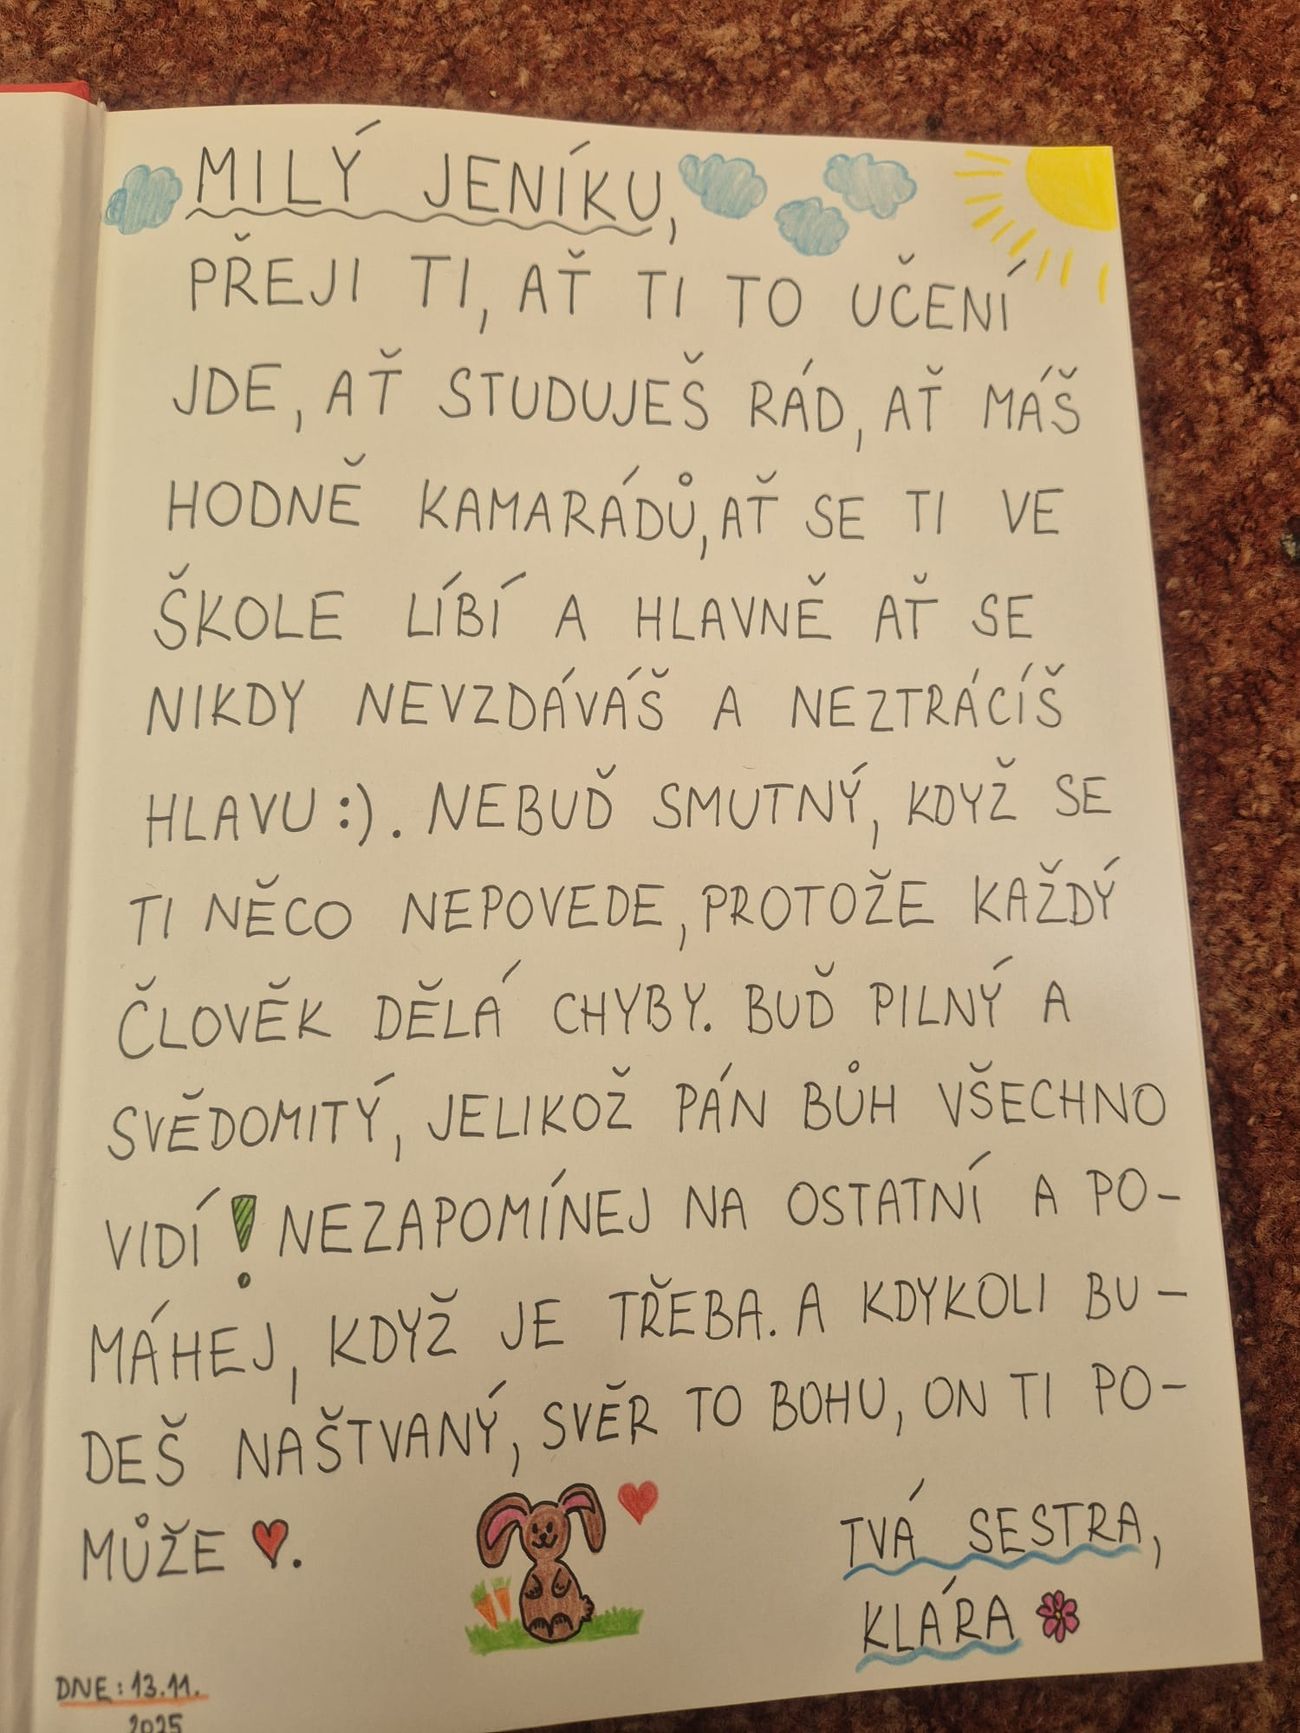 MILÝ JENÍKU,
PŘEJI TI, AŤ TI TO UČENÍ
JDE, AŤ STUDUJEŠ RÁD, AŤ MÁŠ
HODNĚ KAMARÁDŮ, AŤ SE TI VE
ŠKOLE LÍBÍ A HLAVNĚ AŤ SE
NIKDY NEVZDÁVÁŠ A NEZTRÁCÍŠ
HLAVU :). NEBUĎ SMUTNÝ, KDYŽ SE
TI NĚCO NEPOVEDE, PROTOŽE KAŽDÝ
ČLOVĚK DĚLÁ CHYBY. BUĎ PILNÝ A
SVĚDOMITÝ, JELIKOŽ PÁN BŮH VŠECHNO
VIDÍ! NEZAPOMÍNEJ NA OSTATNÍ A PO-
MÁHEJ, KDYŽ JE TŘEBA. A KDYKOLI BU-
DEŠ NAŠTVANÝ, SVĚŘ TO BOHU, ON TI PO-
MŮŽE ♥.
TVÁ SESTRA,
KLÁRA
DNE: 13.11.
2025